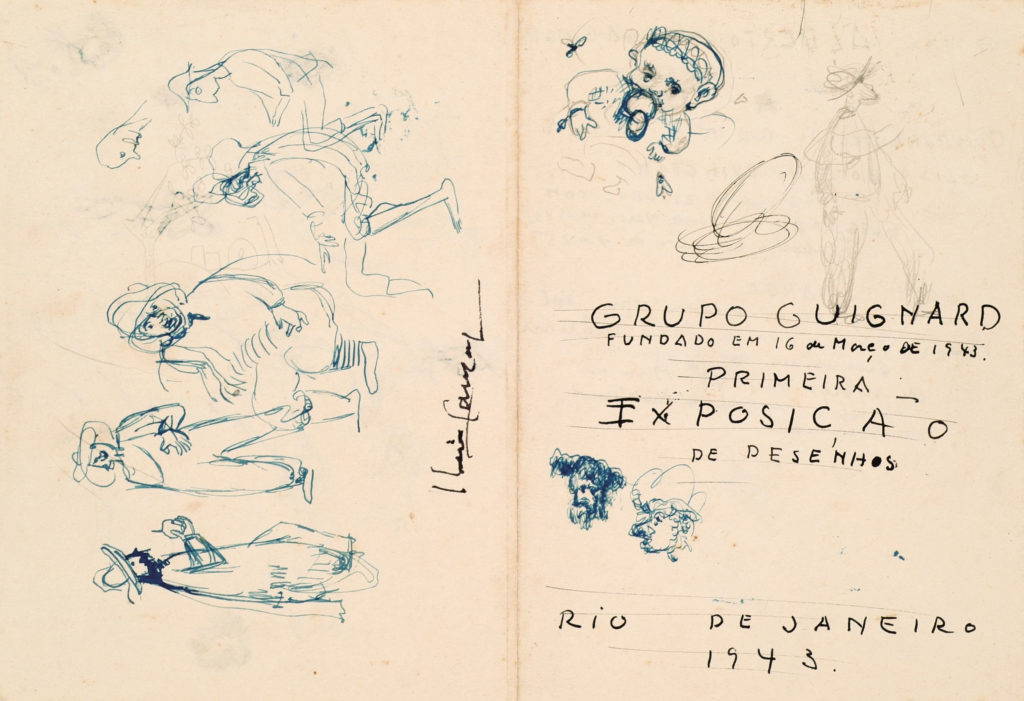 Iberê Camargo
GRUPO GUIGNARD
FUNDADO EM 16 de Março DE 1943.
PRIMEIRA
EXPOSIÇÃO
DE DESENHOS
RIO DE JANEIRO
1943.